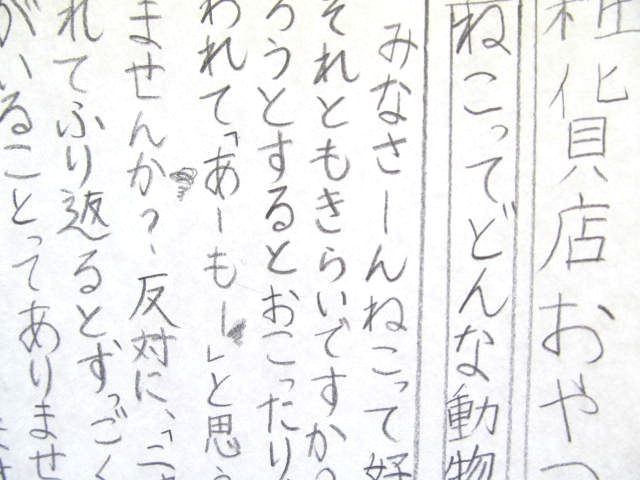 雑貨店おやつ
ねこってどんな動物
みなさーんねこって好
それともきらいですか?
ろうとするとおこったり
われて「あーもー」と思う
ませんか?、反対に、「こ
れてふり返るとずっごく
がいることってありませ